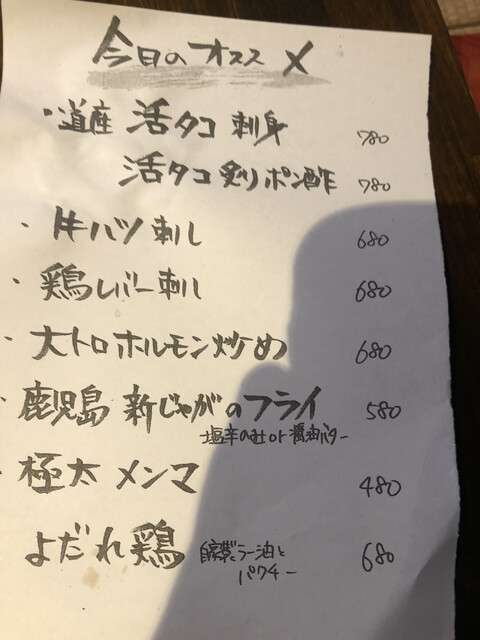 今日のオススメ
・道産 活タコ 刺身 780
活タコ 炙りポン酢 780
・牛ハツ刺し 680
・鶏レバー刺し 680
・大トロホルモン炒め 680
・鹿児島 新じゃがのフライ 580
塩辛のせ or 醤油バター
・極太メンマ 480
よだれ鶏 自家製ラー油と 680
パクチー